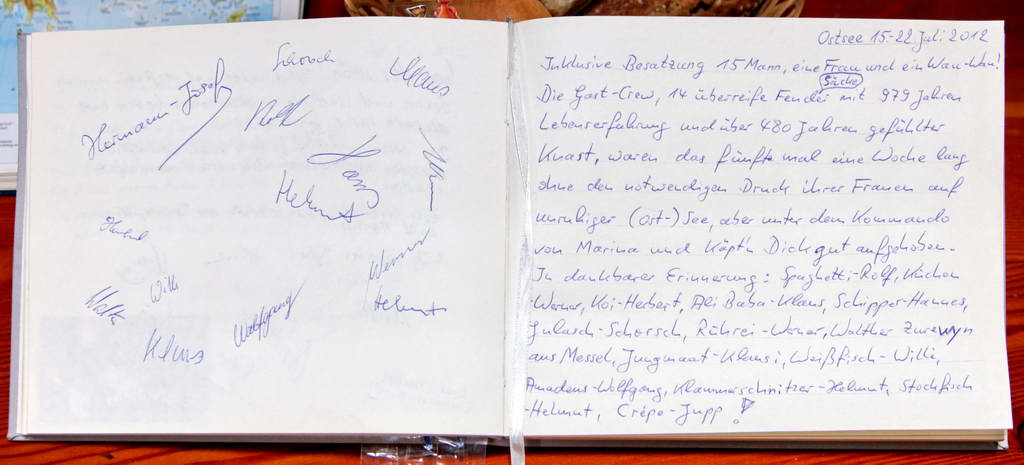 Schorsch
Klaus
Hermann-Josef
Rolf
Hans
Helmut
Werner
Helmut
Herbert
Willi
Walter
Wolfgang
Klaus
Ostsee 15-22. Juli 2012
Inklusive Besatzung 15 Mann, eine Frau und ein Wau-Wau!
Säcke
Die Gast-Crew, 14 überreife Fender mit 979 Jahren
Lebenserfahrung und über 480 Jahren gefühlter
Knast, waren das fünfte mal eine Woche lang
ohne den notwendigen Druck ihrer Frauen auf
unruhiger (Ost-) See, aber unter dem Kommando
von Marina und Käpt'n Dick gut aufgehoben.
In dankbarer Erinnerung: Spaghetti-Rolf, Küchen
-Werner, Koi-Herbert, Ali Baba-Klaus, Schipper-Hannes,
Gulasch-Schorsch, Rührei-Werner, Walther
aus Messel, Jungmaat-Klausi, Weißfisch-Willi,
Amadeus-Wolfgang, Klammerschnitzer-Helmut, Stockfisch
-Helmut, Crêpe-Jupp!